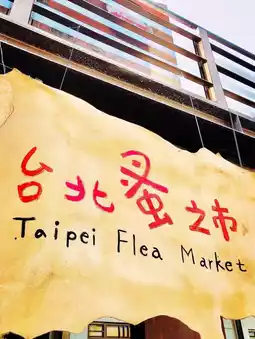 台北蚤之市
Taipei Flea Market